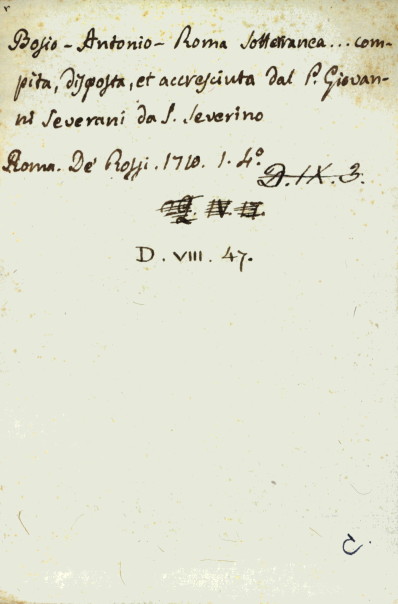 Bosio - Antonio - Roma Sotterranea... com-
pita, disposta, et accresciuta dal P. Giovan-
ni Severani da S. Severino
Roma. De' Rossi. 1710. 1. 4º
D. IX. 3.
D. VIII. 47.
C.